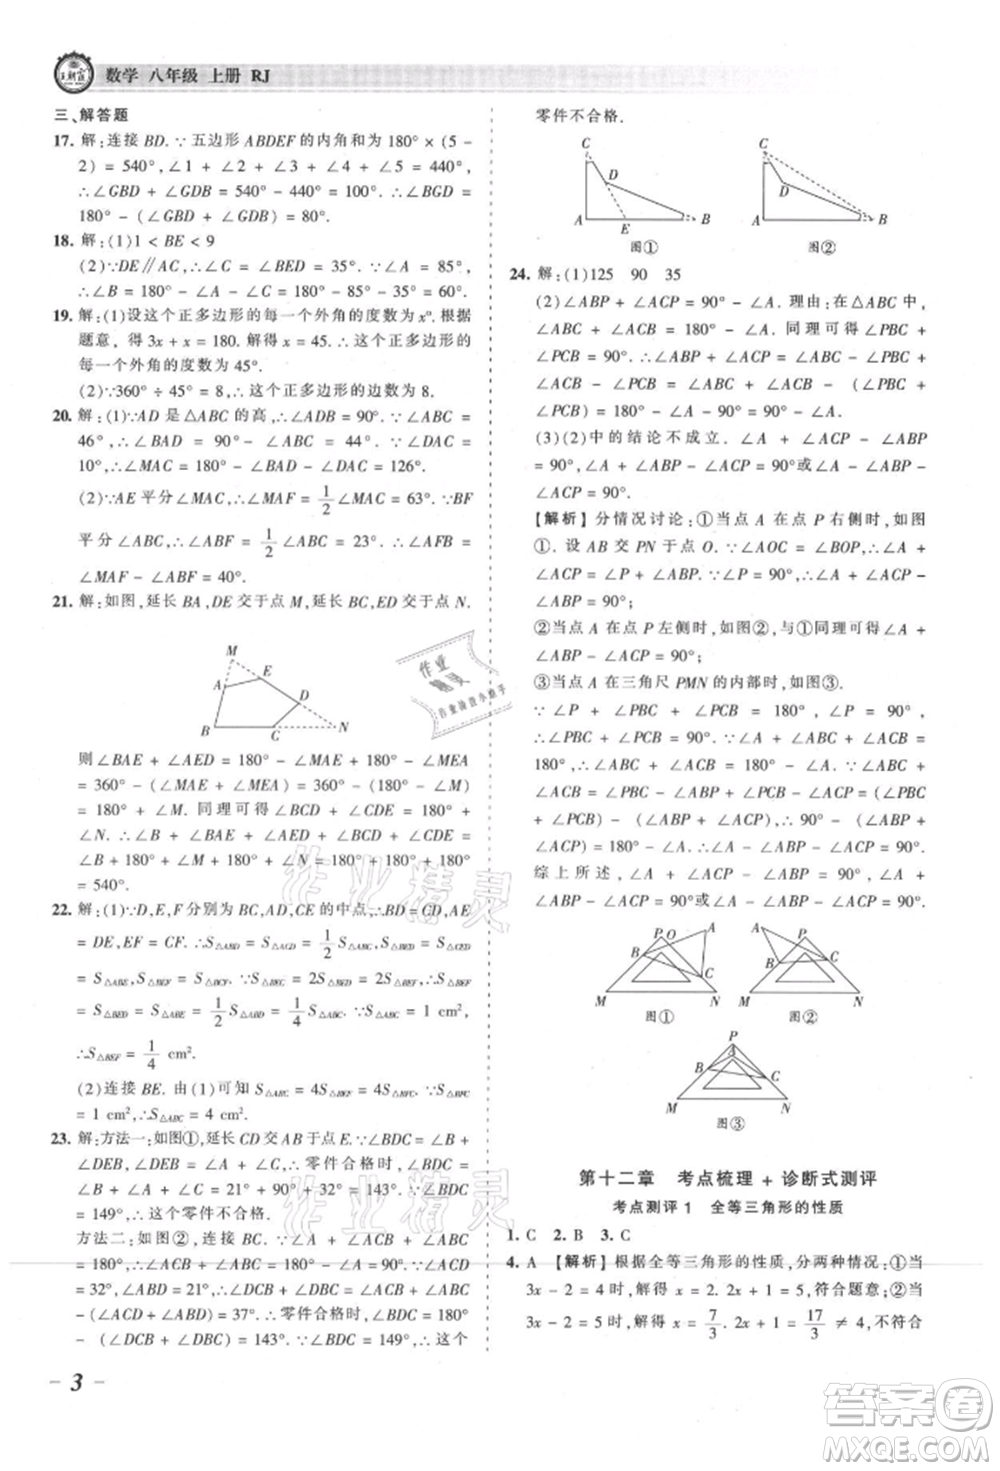 王朝霞
数学 八年级 上册 RJ
三、解答题
17. 解:连接 BD. ∵ 五边形 ABDEF 的内角和为 180° × (5 -
2) = 540°, ∠1 + ∠2 + ∠3 + ∠4 + ∠5 = 440°,
∴ ∠GBD + ∠GDB = 540° - 440° = 100°. ∴ ∠BGD =
180° - (∠GBD + ∠GDB) = 80°.
18. 解:(1)1 < BE < 9
(2)∵ DE∥AC, ∴ ∠C = ∠BED = 135°. ∵ ∠A = 85°,
∴ ∠B = 180° - ∠C - ∠A = 10°.
19. 解:(1)设这个正多边形的每一个外角的度数为 x°. 根据
题意, 得 3x + x = 180. 解得 x = 45. ∴ 这个正多边形的
每一个外角的度数为 45°.
(2)∵360° ÷ 45° = 8, ∴ 这个正多边形的边数为 8.
20. 解:(1)∵AD 是 △ABC 的高, ∴ ∠ADB = 90°. ∵ ∠ABC =
46°, ∴ ∠BAD = 90° - ∠ABC = 44°. ∵ ∠DAC =
10°, ∴ ∠MAC = 180° - ∠BAD - ∠DAC = 126°.
(2)∵AE 平分∠MAC, ∴ ∠MAF = 1/2∠MAC = 63°. ∵BF
平分 ∠ABC, ∴ ∠ABF = 1/2∠ABC = 23°. ∴ ∠AFB =
∠MAF - ∠ABF = 40°.
21. 解:如图,延长 BA,DE 交于点 M,延长 BC,ED 交于点 N.
M
E
A
D
B
C
N
则∠BAE + ∠AED = 180° - ∠MAE + 180° - ∠MEA
= 360° - (∠MAE + ∠MEA) = 360° - (180° - ∠M)
= 180° + ∠M. 同理可得∠BCD + ∠CDE = 180° +
∠N. ∴ ∠B + ∠BAE + ∠AED + ∠BCD + ∠CDE =
∠B + 180° + ∠M + 180° + ∠N = 180° + 180° + 180°
= 540°.
22. 解:(1)∵D,E,F 分别为 BC,AD,CE 的中点,∴BD = CD,AE
= DE,EF = CF. ∴ S△ABE = S△ACD = 1/2 S△ABC, S△BDE = S△CED
= S△ABE, S△BEF = S△BCF. ∴ S△BEC = 2S△BEF = 2S△BED. ∴ S△BEF
= S△BED = S△ABE = 1/2 S△ABD = 1/4 S△ABC. ∵ S△ABC = 1 cm²,
∴S△BEF = 1/4 cm².
(2)连接 BE. 由(1)可知 S△ABC = 4S△BEF = 4S△BFC. ∵S△BFC
= 1 cm², ∴S△ABC = 4 cm².
23. 解:方法一:如图①,延长 CD 交 AB 于点 E. ∵∠BDC = ∠B +
∠DEB, ∠DEB = ∠A + ∠C, ∴ 零件合格时, ∠BDC =
∠B + ∠A + ∠C = 32° + 90° + 21° = 143°. ∵ ∠BDC =
149°, ∴ 这个零件不合格.
方法二:如图②,连接 AD 并延长. ∵∠CAD + ∠C + ∠ADC =
180°, ∠BAD + ∠B + ∠ADB = 180°, ∠A = 90°, ∠B =
32°, ∠C = 21°, ∴ ∠DCB + ∠DBC = 180° - ∠CAB
- (∠ACD + ∠ABD) = 37°. ∴ 零件合格时, ∠BDC = 180°
- (∠DCB + ∠DBC) = 143°. ∵ ∠BDC = 149°, ∴ 这个
- 3 -
零件不合格.
C
D
A
E
B
图①
C
D
A
B
图②
24. 解:(1)125 90 35
(2)∠ABP + ∠ACP = 90° - ∠A. 理由:在△ABC 中,
∠ABC + ∠ACB = 180° - ∠A. 同理可得 ∠PBC +
∠PCB = 180° - ∠P = 90°. ∵ ∠ABP + ∠PBC = ∠ABC,
∠ACP + ∠PCB = ∠ACB, ∴ ∠ABP + ∠ACP = 180° -
∠A - 90° = 90° - ∠A.
(3)(2)中的结论不成立. ∠A + ∠ACP - ∠ABP
= 90°或∠A + ∠ABP - ∠ACP = 90°或∠A - ∠ABP
- ∠ACP = 90°.
【解析】分情况讨论:①当点 A 在点 P 右侧时,如图
①. 设 AB 交 PN 于点 O. ∵ ∠AOC = ∠BOP, ∴ ∠A +
∠ACP = ∠P + ∠ABP. ∵∠P = 90°, ∴∠A + ∠ACP -
∠ABP = 90°.
②当点 A 在点 P 左侧时,如图②,与①同理可得∠A +
∠ABP - ∠ACP = 90°.
③当点 A 在三角尺 PMN 的内部时,如图③.
∵ ∠P + ∠PBC + ∠PCB = 180°, ∠P = 90°,
∴ ∠PBC + ∠PCB = 90°. ∵ ∠A + ∠ABC + ∠ACB =
180°, ∴ ∠A + ∠PBC - ∠ABP + ∠PCB - ∠ACP =
180°. ∴ ∠A - ∠ABP - ∠ACP + (∠PBC + ∠PCB)
= 180°. ∴ ∠A - ∠ABP - ∠ACP = 90°.
综上所述, ∠A + ∠ACP - ∠ABP = 90°或∠A +
∠ABP - ∠ACP = 90°或∠A - ∠ABP - ∠ACP = 90°.
P O A
B
C
M N
图①
A P
B C
M N
图②
P
A
B C
M N
图③
第十二章 考点梳理 + 诊断式测评
考点测评 1 全等三角形的性质
1. C 2. B 3. C
4. A 【解析】根据全等三角形的性质,分两种情况:①当
3x - 2 = 4 时,解得 x = 2. 2x + 1 = 5,符合题意;②当
3x - 2 = 5 时,解得 x = 7/3. 2x + 1 = 17/3 ≠ 4,不符合
作业精灵
作业精灵
作业
精灵
作业检查小助手
答案圈
MXQE.COM